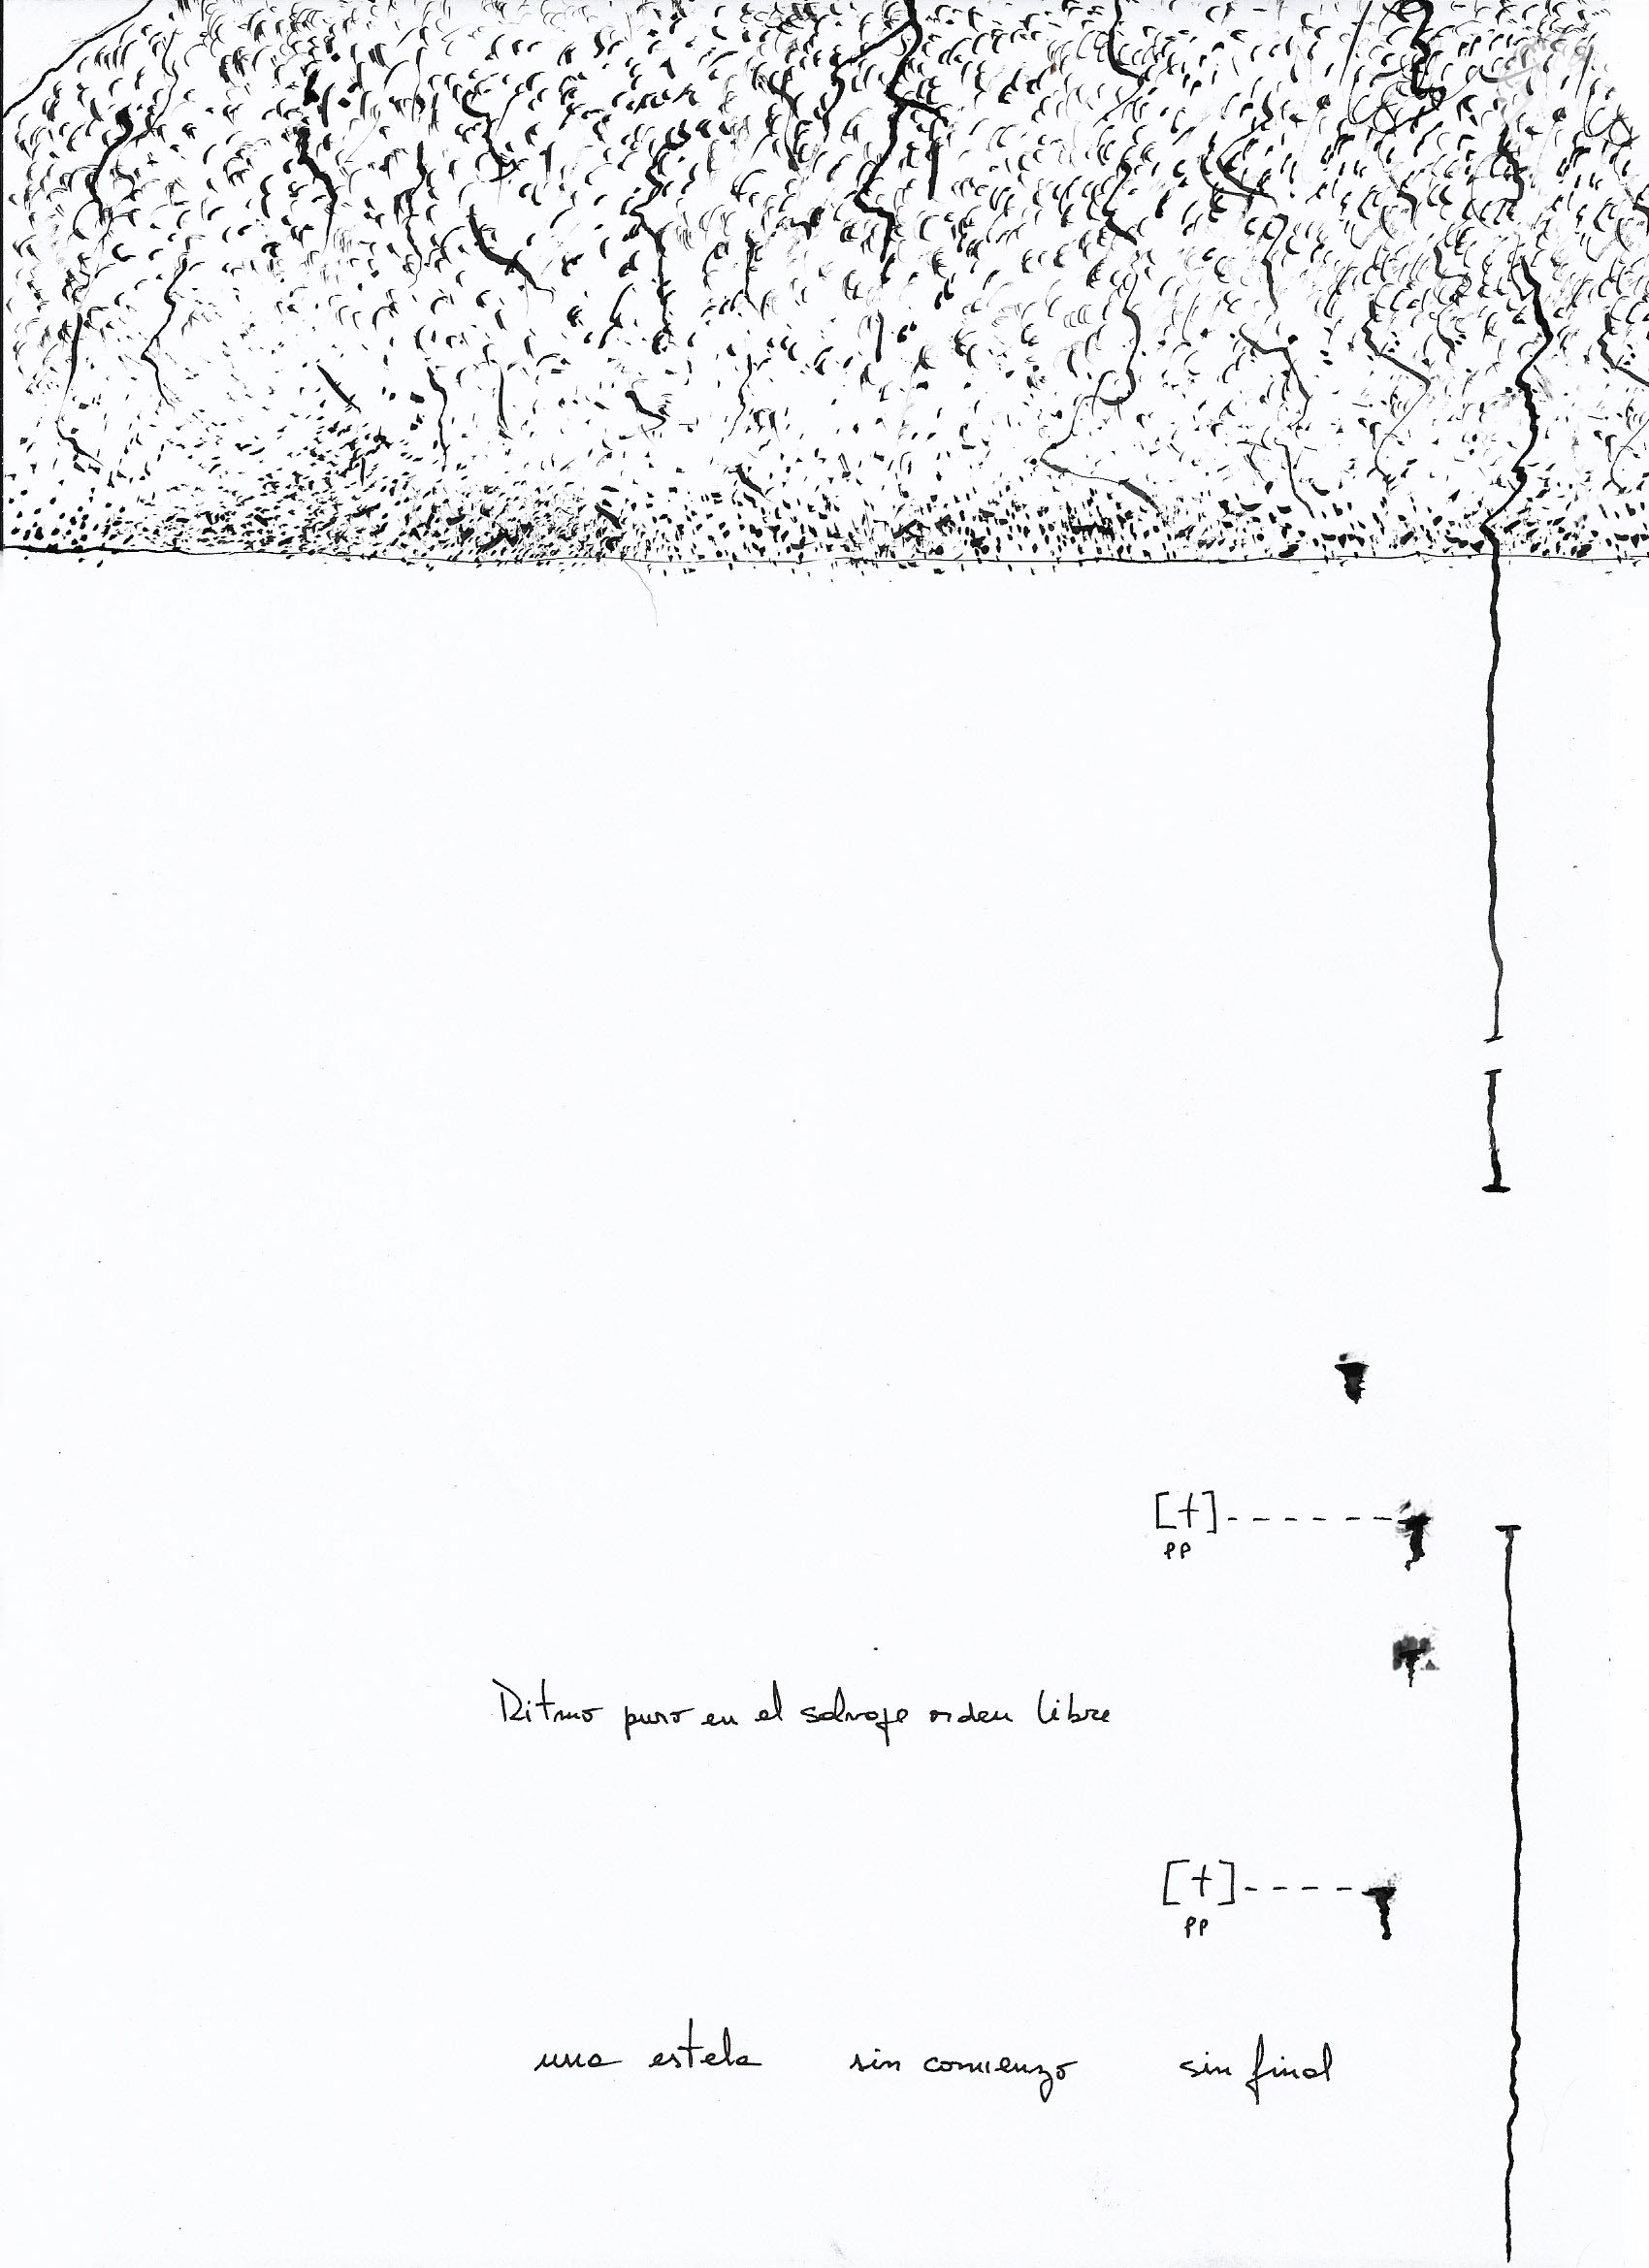 [+]
pp
Ritmo puro en el salvaje orden libre
[+]
pp
una estela sin comienzo sin final